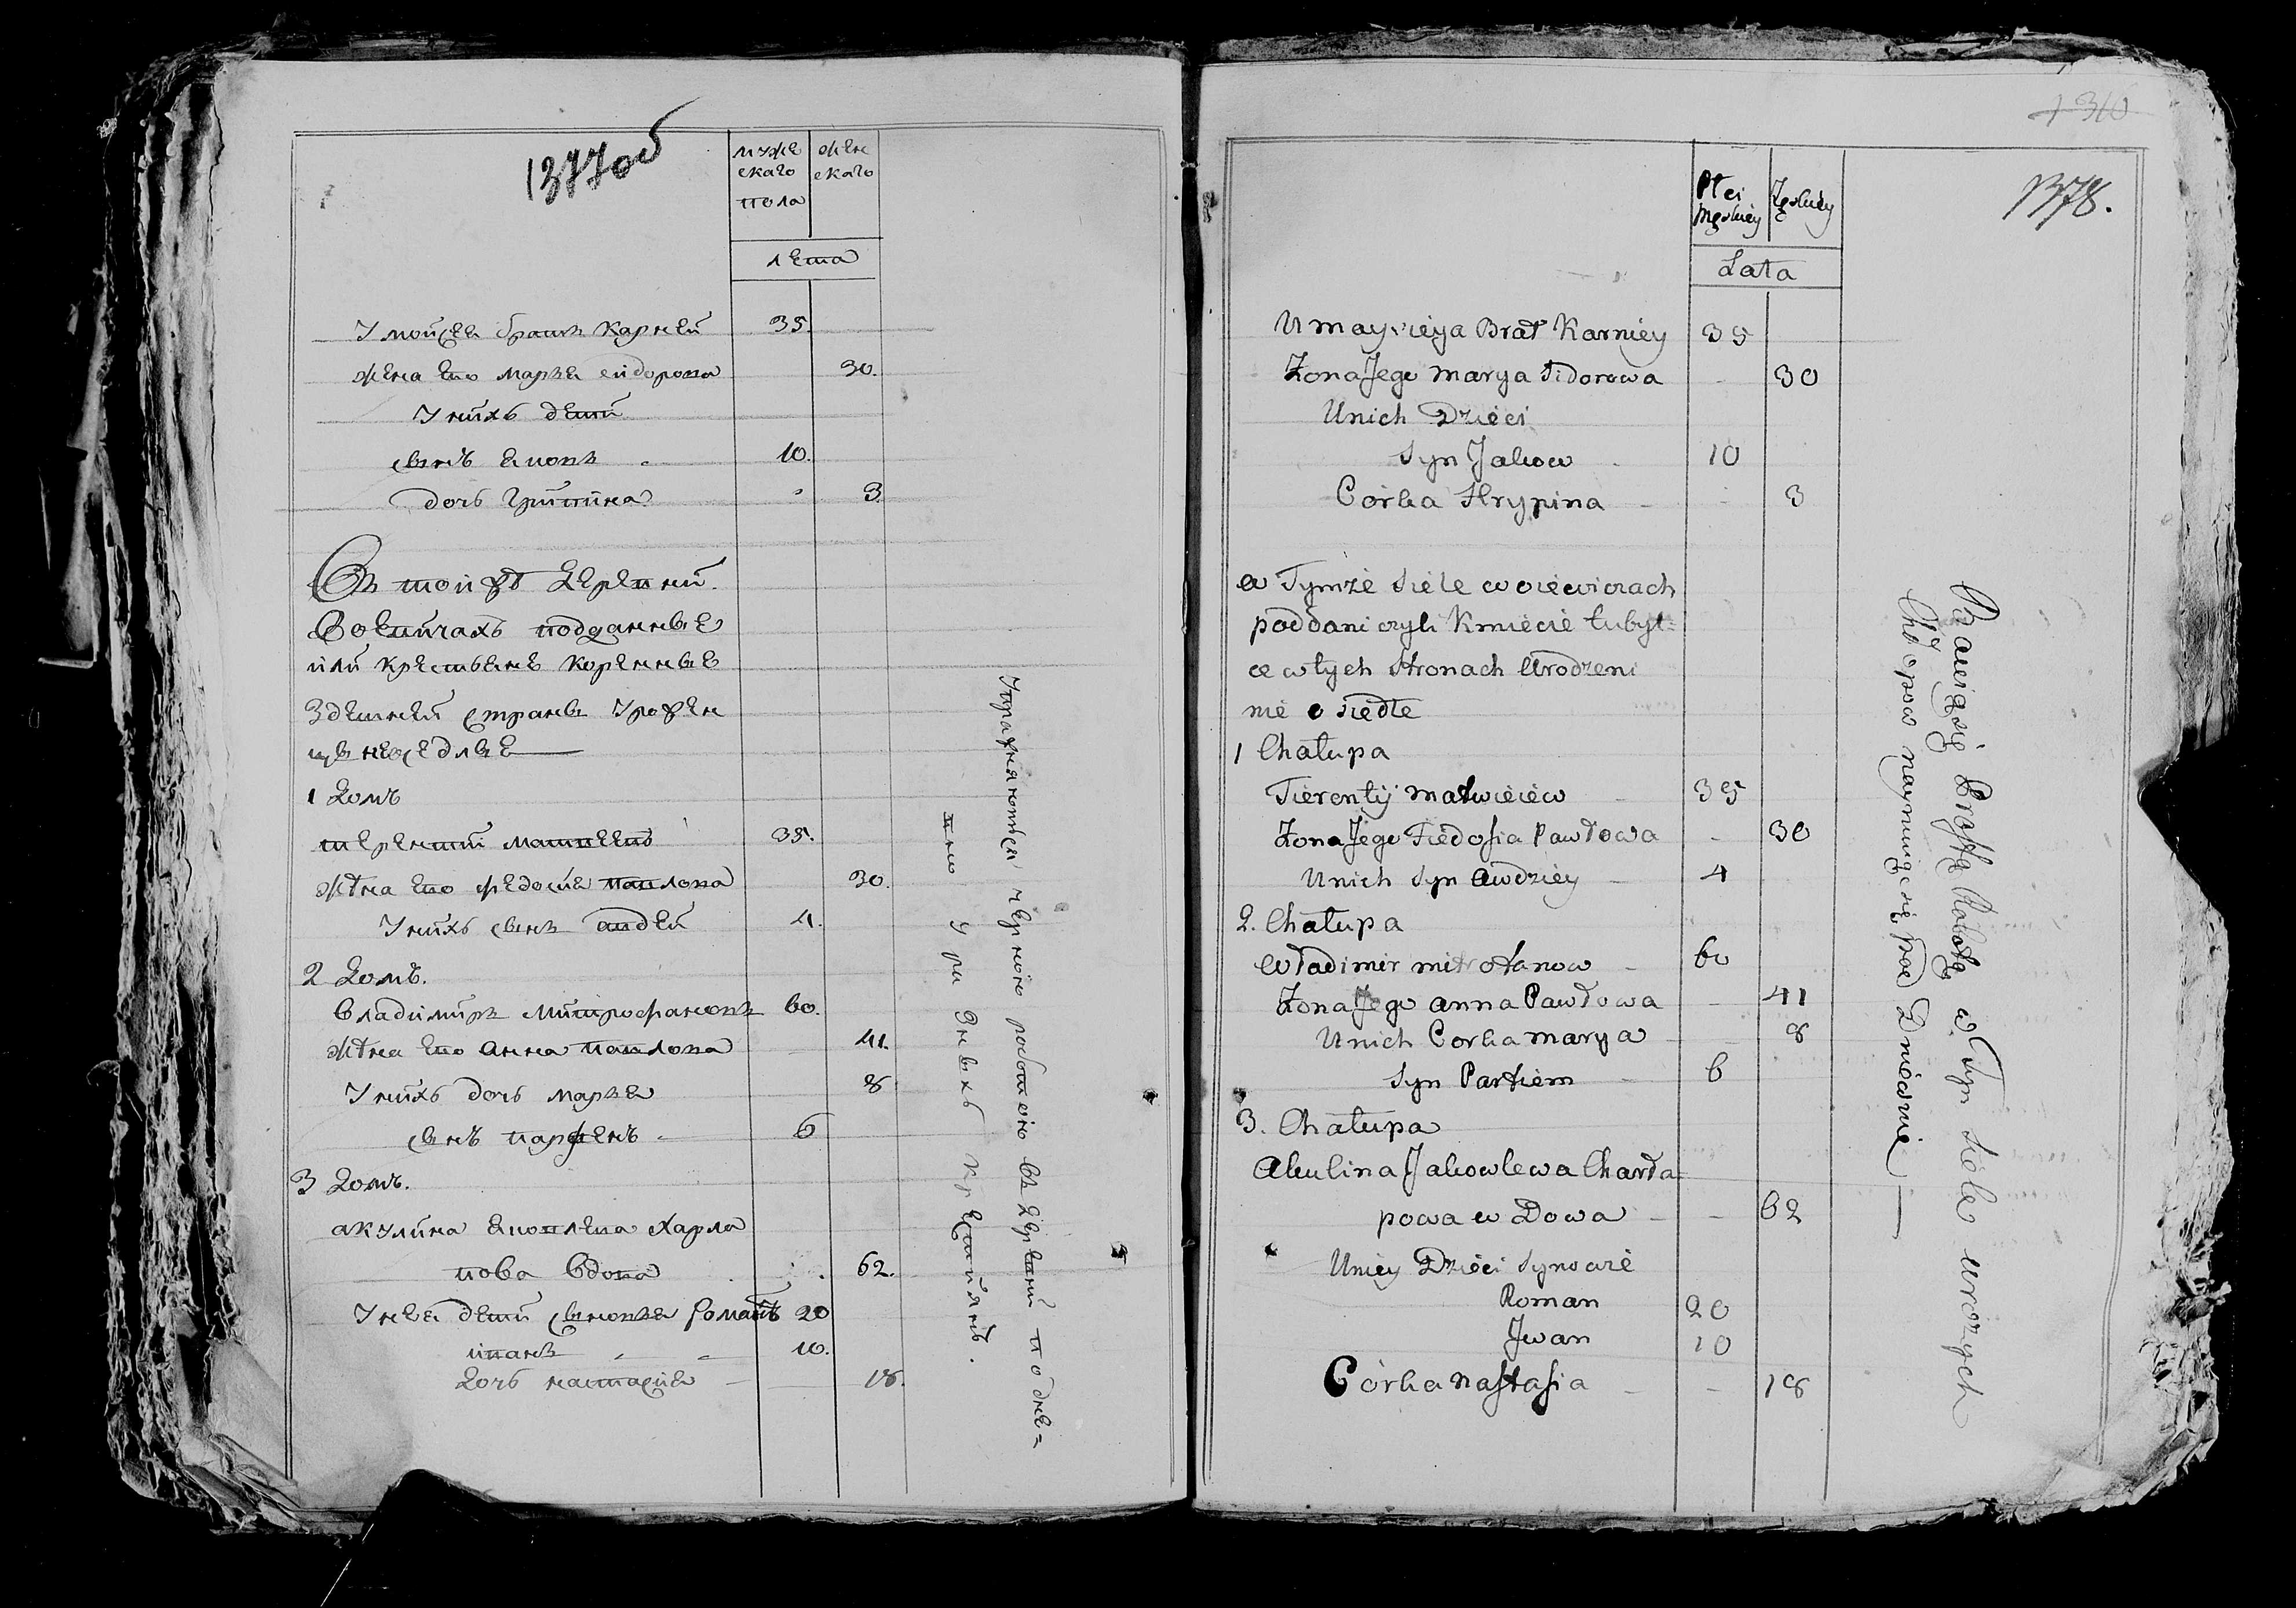 1377об
муже
скаго
пола
жен
скаго
лета
У мойсея братъ Карней 35.
жена его Марья сидорова 30.
У нихъ дети
сынъ Яковъ 10.
дочь Грипина 3
Въ той же деревни
Воевичахъ подданные
или крестьяне коренные
Здешней страны урожен
цы неоседлые
1 Домъ
терентий матвеевъ 35.
жена его федосия павлова 30.
У нихъ сынъ авдей 4.
2 Домъ.
владимиръ митрофановъ 60.
жена его анна павлова 41.
У нихъ дочь марья 8
сынъ парфенъ 6
3 Домъ.
акулина Яковлева Харла
пова вдова 62.
У нея дети сыновья Романъ 20
иванъ 10.
Дочь настасия 18.
Упражняются черною работою въ деревни подне=
вно у разныхъ крестиянъ.
1310
1378.
Płci
Męskiey
Żeńskiey
Lata
U maysieya Brat Karniey 35
Żona Jego Marya Sidorowa 30
U nich Dzieci
Syn Jakow 10
Córka Hrypina 3
w Tymże Siele woiewiczach
poddani czyli Kmiecie tubyl=
ce w tych Stronach Urodzeni
nie osiedłe
1 Chałupa
Tierentij Matwieiew 35
Żona Jego Fiedosia Pawłowa 30
U nich Syn Awdziey 4
2. Chałupa
Władimir mitrofanow 60
Żona Jego Anna Pawłowa 41
U nich Corka Marya 8
Syn Parfiem 6
3. Chałupa
Akulina Jakowlewa Charła=
powa w Dowa 62
U niey Dzieci Synowie
Roman 20
Jwan 10
Córka Nastasia 18
Bawią się Prostą Robotą w tym siele u różnych
Chłopow naymuiąc się pod Dniewnie